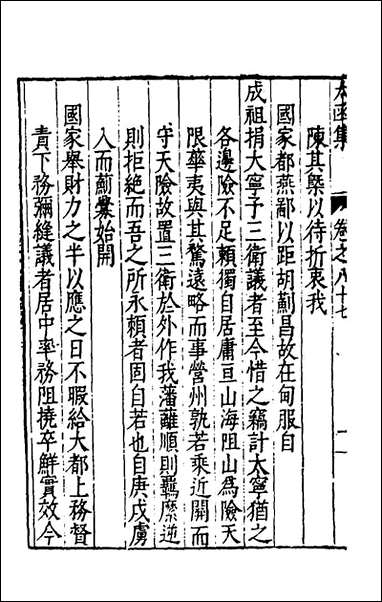 太函集 卷之八十七 二
陳其槩以待折衷我
國家都燕鄙以距胡薊昌故在甸服自
成祖捐大寧予三衛議者至今惜之竊計大寧猶之
各邊險不足賴獨自居庸亘山海阻山為險天
限華夷與其騖遠略而事營州孰若乘近關而
守天險故置三衛於外作我藩蘺順則羈縻逆
則拒絶而吾之所永賴者固自若也自庚戌虜
入而薊釁始開
國家舉財力之半以應之日不暇給大都上務督
責下務彌縫議者居中率務阻撓卒鮮實效今